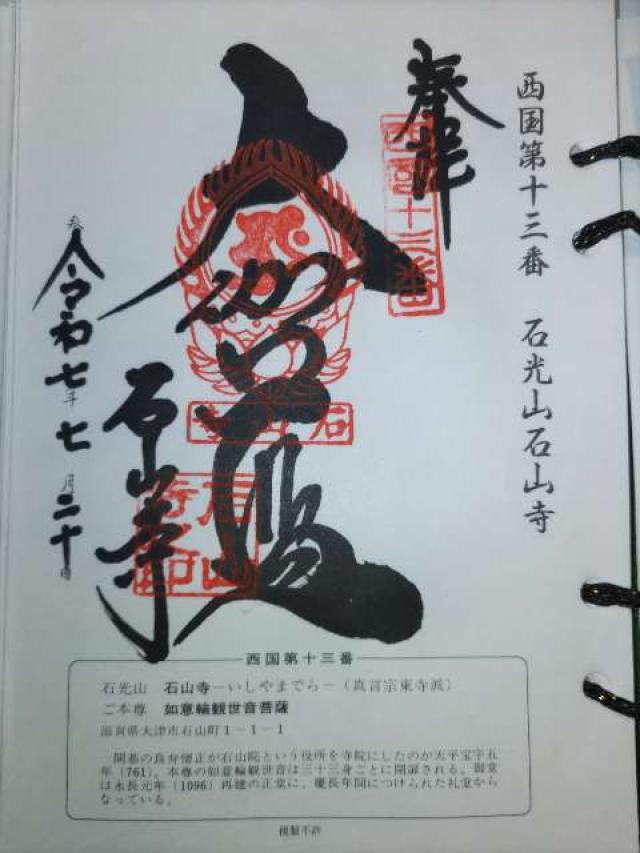 西国第十三番　石光山石山寺
奉拝
西国十三番
大伽藍
石山寺
石山寺印
令和七年七月二十日
西国第十三番
石光山　石山寺－いしやまでら－（真言宗東寺派）
ご本尊　如意輪観世音菩薩
滋賀県大津市石山町1－1－1
開基の良弁僧正が石山院という役所を寺院にしたのが天平宝字五
年（761）。本尊の如意輪観世音は三十三身ごとに開扉される。御堂
は永長元年（1096）再建の正堂に、慶長年間につけられた礼堂から
なっている。
複製不許